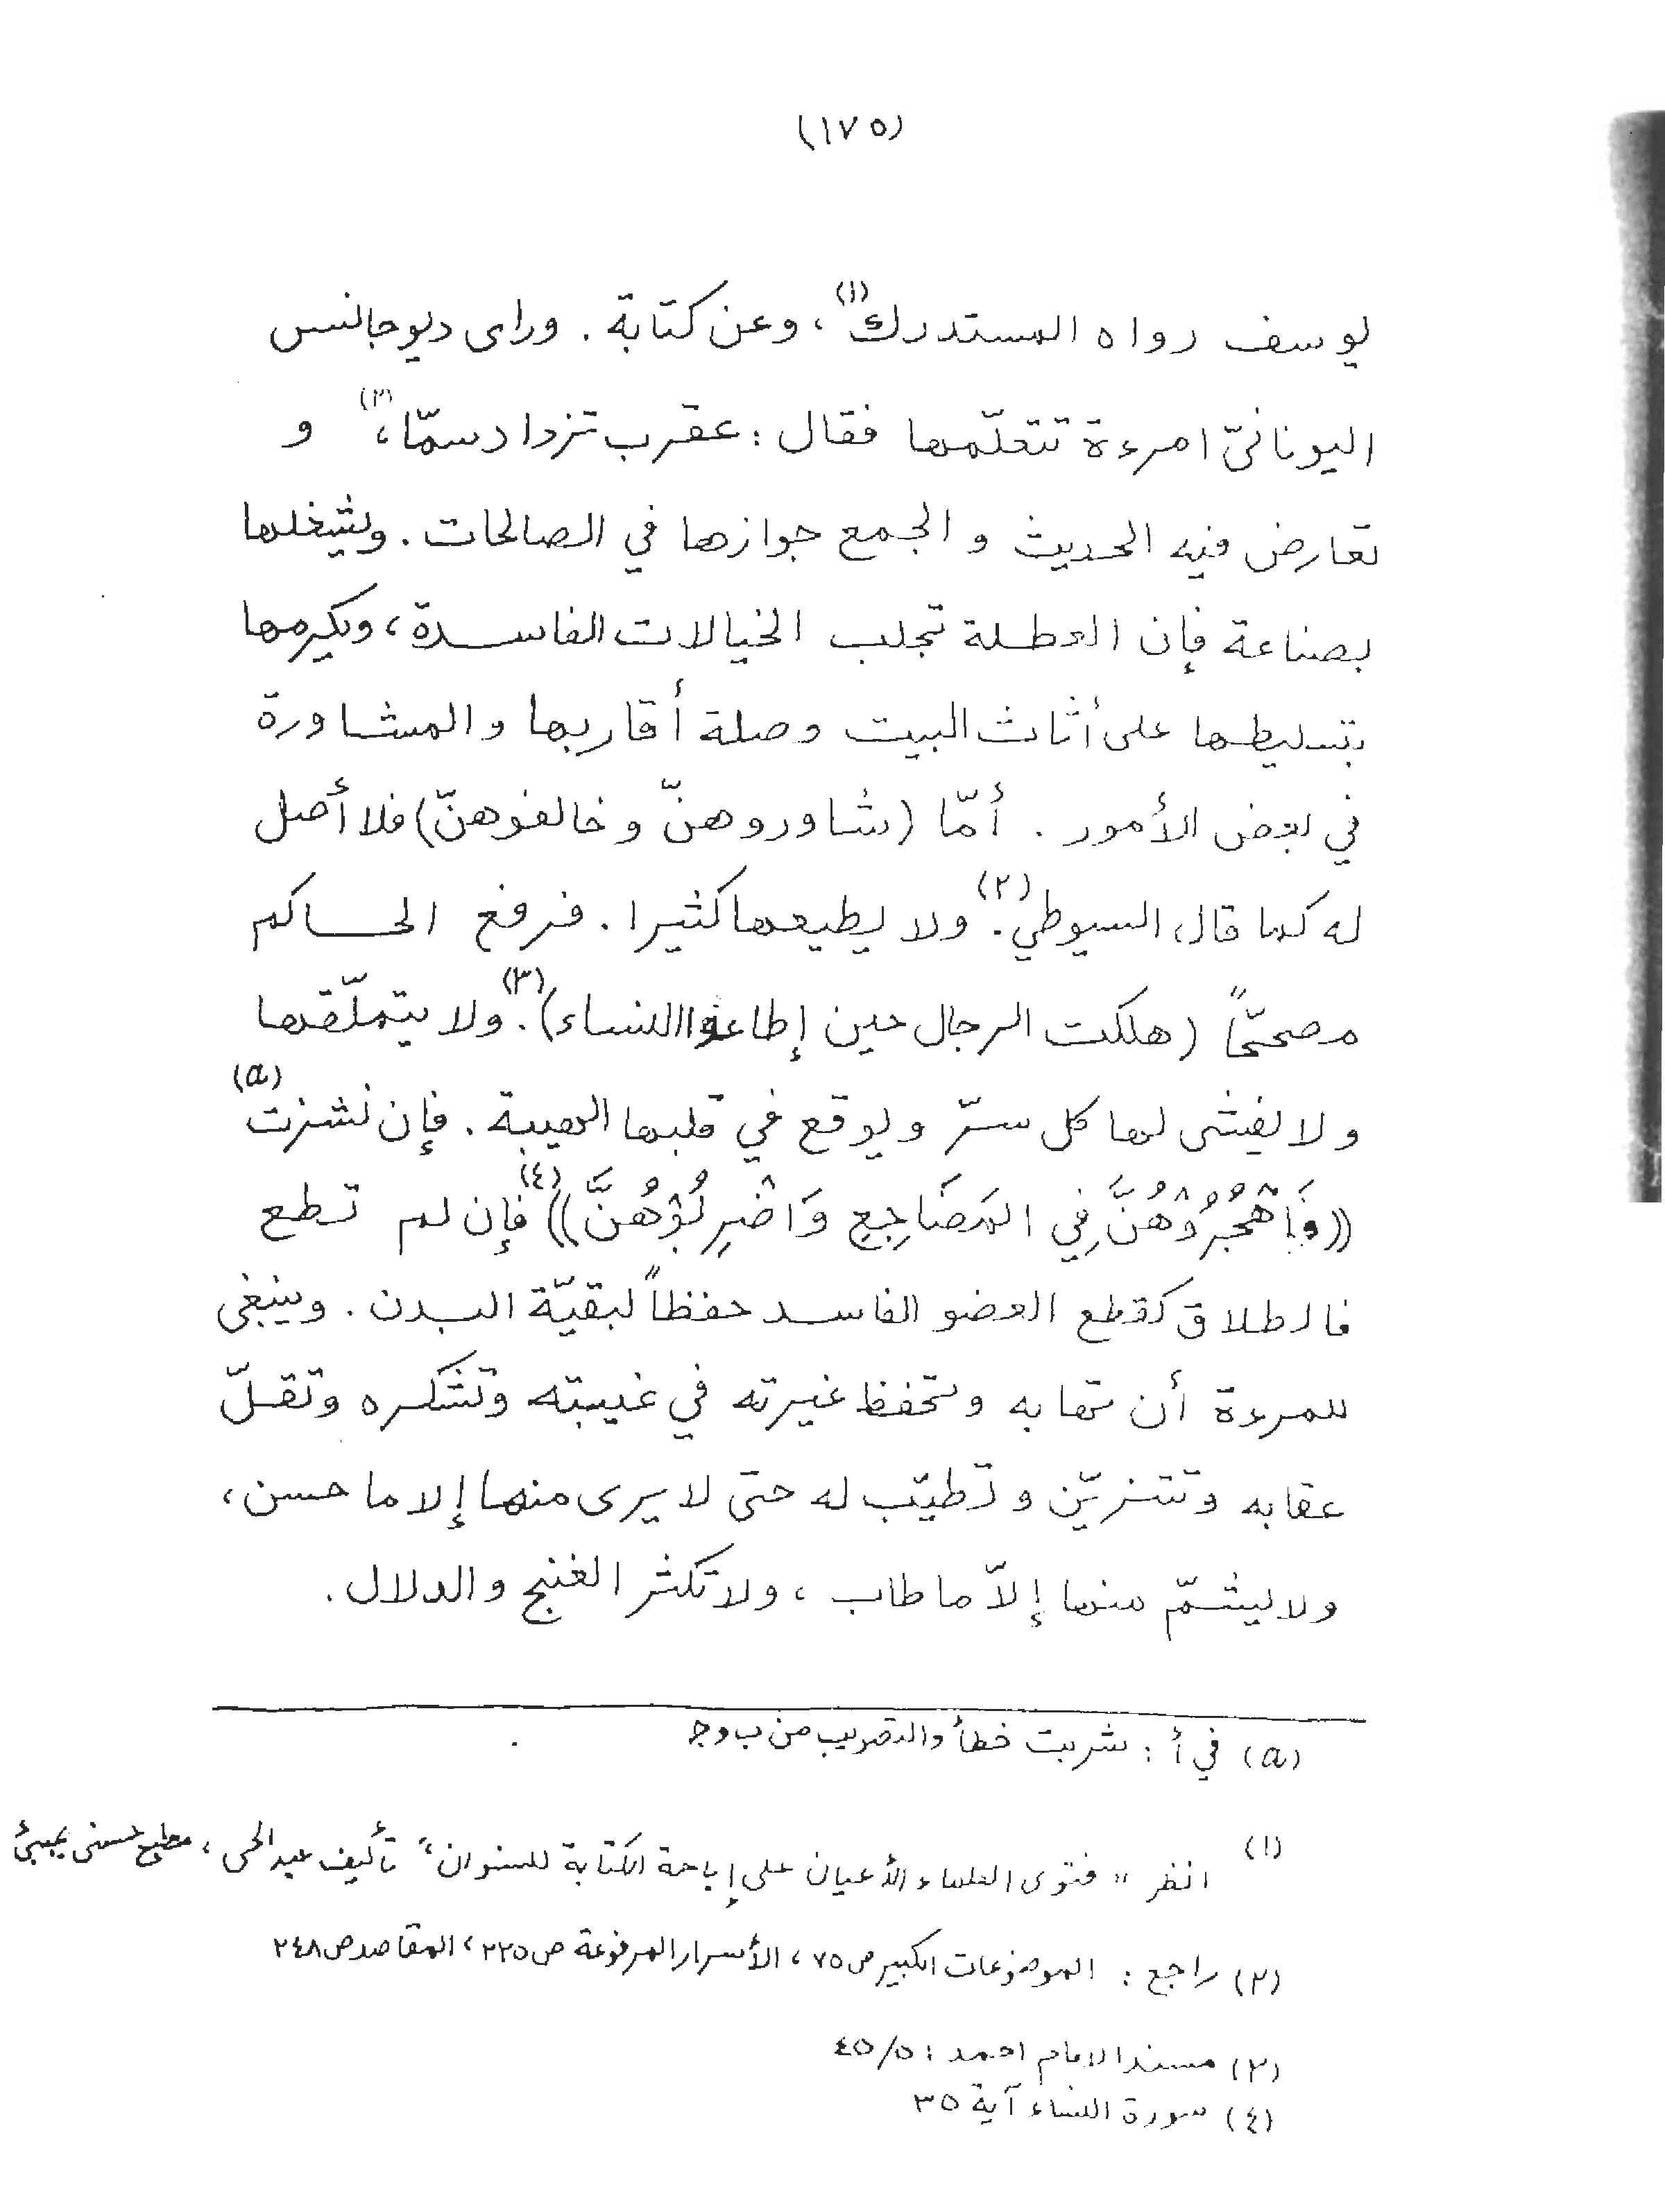 (١٧٥)
يوسف رواه المستدرك(١)، وعن كتابة. وراى ديوجانس
اليونانىّ امرءة تتعلّمها فقال: عقرب تزداد سمّا،(٢) و
تعارض فيه الحديث و الجمع جوازها في الصالحات. ويشغلها
بصناعة فإن العطلة تجلب الخيالات الفاسدة، ويكرمها
بتسليطها على أثاث البيت وصلة أقاربها والمشاورة
في بعض الأمور. أمّا (شاوروهنّ و خالفوهنّ) فلا أصل
له كما قال السيوطي(٢). ولا يطيعها كثيرا. فرفع الحاكم
مصححّاً (هلكت الرجال حين إطاعوا النساء)(٣). ولا يتملّقها
ولا يفشى لها كل سرّ ويوقع في قلبها الهيبة. فإن نشزت(a)
((فَاهْجُرُوْهُنَّ فِي المَضَاجِعِ وَاضْرِبُوْهُنَّ))(٤) فإن لم تطع
فالطلاق كقطع العضو الفاسد حفظاً لبقيّة البدن. وينبغى
للمرءة أن تهابه وتحفظ غيرته في غيبته وتشكره وتقلّ
عقابه وتتزيّن وتطيّب له حتى لا يرى منها إلا ما حسن،
ولا يشمّ منها إلاّ ما طاب، ولا تكثر الغنج والدلال.
(a) في أ: شربت خطأ والتصويب من ب وج
(١) انظر "فتوى العلماء الأعيان على إباحة الكتابة للنسوان" تأليف عبد الحى، مطبع حسنى بمبئ
(٢) راجع: الموضوعات الكبير ص ٧٥، الأسرار المرفوعة ص ٢٢٥، المقاصد ص ٢٤٨
(٣) مسند الامام احمد: ٤٥/٥
(٤) سورة النساء آية ٣٥